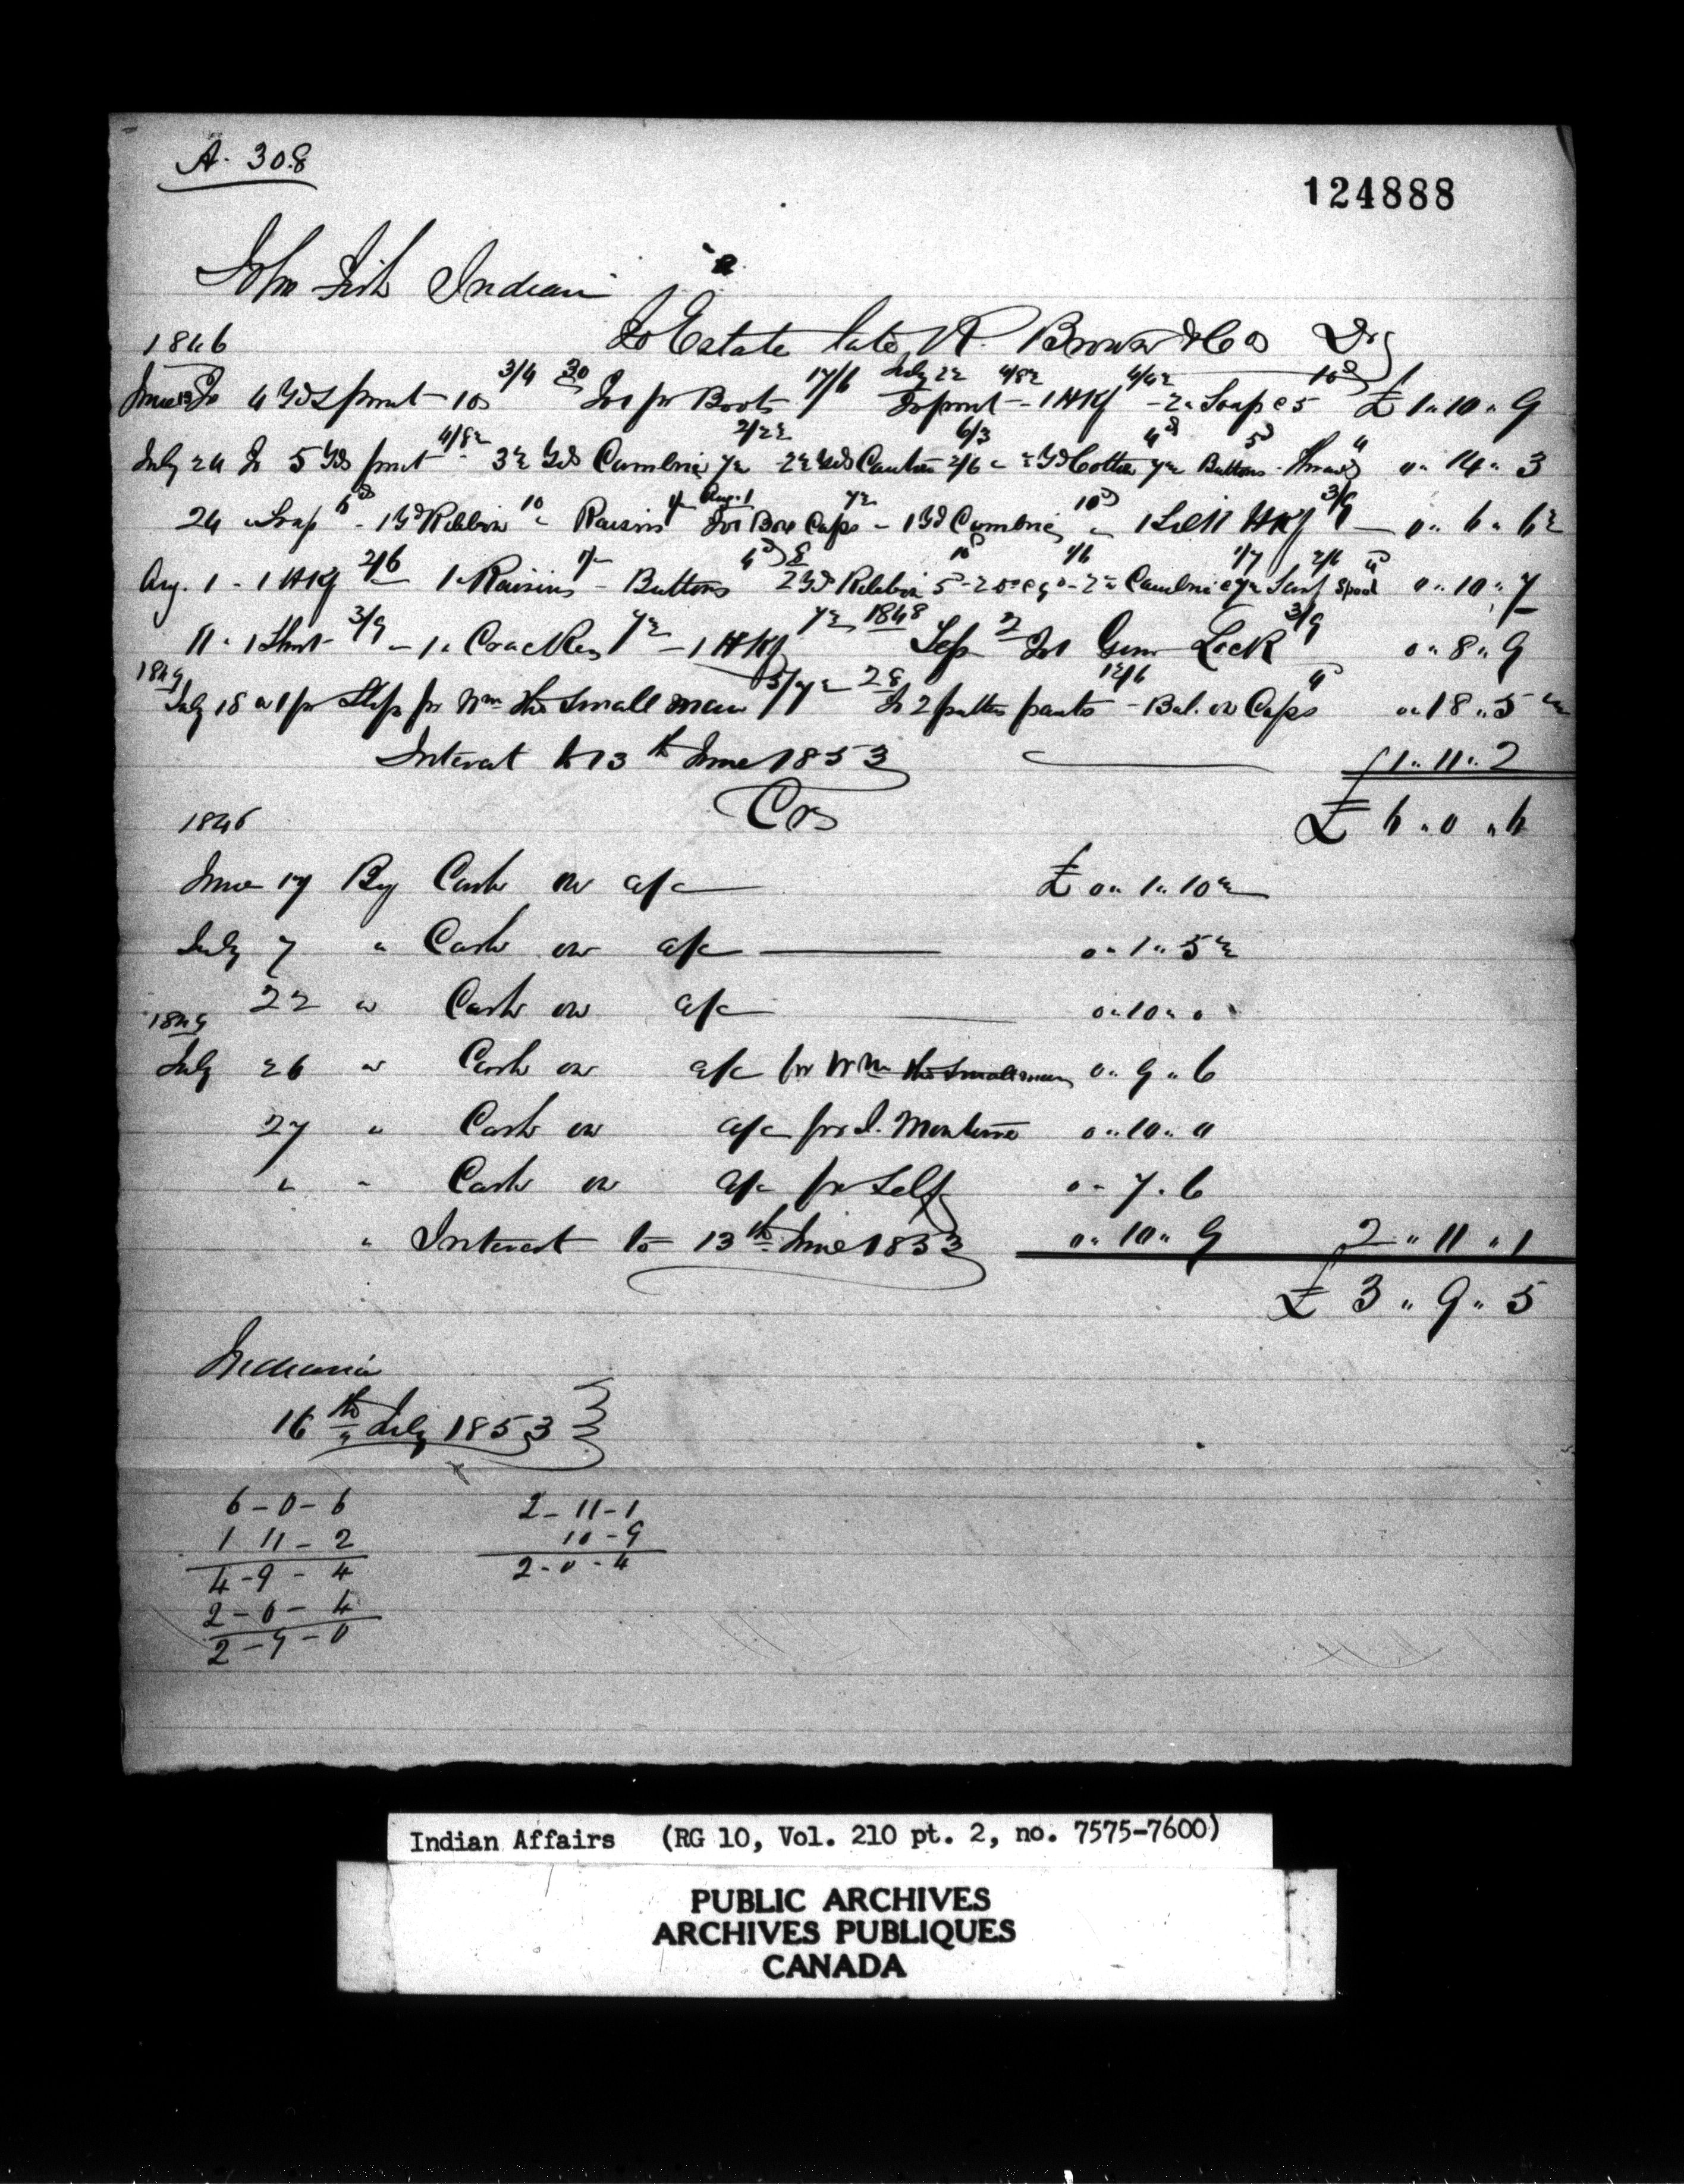 A. 308
124888
John Fish Indian
To Estate late R. Brown & Co Dr
1846
June 13 To 4 Yds print 10 3/4 30 To 1 pr Boots 17/6 July 22 To print 4/8½ - 1 HKf 4/4½ - 2 " Soap @ 5 10d £ 1 " 10 " 9
July 24 To 5 Yds print 4/8½ - 3½ Yds Cambric 7½ 2/2½ - 2½ Yds 2/6 6/3 - ½ Yd Cotton 7½ 4d Buttons 5d Thread 4 0 " 14 " 3
24 " Soap 6d - 1 Yd Ribbon 10 " Raisins 1/- Aug. 1 To 1 Box Caps 7½ - 1 Yd Cambric 10d " 1 Silk HKf 3/9 0 " 6 " 6½
Aug. 1 - 1 HKf 2/6 1 " Raisins 1/- - Buttons 4d 8 2 Yd Ribbon 5 10d 1/6 Cambric @ 7½ 1/7 2/6 Spool 4d 0 " 10 " 7
11 - 1 Shirt 3/9 - 1 " Crackers 7½ - 1 HKf 7½ 1848 Sep 2 To 1 Gun Lock 3/9 0 " 8 " 9
1849
July 18 " 1 pr Slips pr Wm the small man 5/7½ 28 To 2 pants 12/6 - Bal. on Caps 4d 0 " 18 " 5½
Interest to 13th June 1853 1 " 11 " 2
Crs £ 6 " 0 " 6
1846
June 17 By Cash on a/c £ 0 " 1 " 10½
July 7 " Cash on a/c 0 " 1 " 5½
22 " Cash on a/c 0 " 10 " 0
1849
July 26 " Cash on a/c pr Wm the small man 0 " 9 " 6
27 " Cash on a/c pr J. Monture 0 " 10 " 0
" " Cash on a/c pr Self 0 " 7 " 6
" Interest to 13th June 1853 0 " 10 " 9 2 " 11 " 1
£ 3 " 9 " 5
Indiana
16th July 1853
6 - 0 - 6 2 - 11 - 1
1 11 - 2 10 - 9
4 - 9 - 4 2 - 0 - 4
2 - 0 - 4
2 - 9 - 0
Indian Affairs (RG 10, Vol. 210 pt. 2, no. 7575-7600)
PUBLIC ARCHIVES
ARCHIVES PUBLIQUES
CANADA